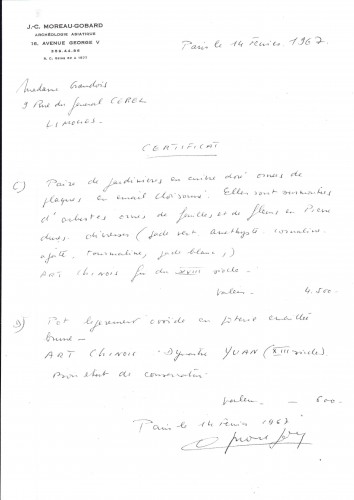 J.-C. MOREAU-GOBARD
ARCHÉOLOGIE ASIATIQUE
16, AVENUE GEORGE V
Paris le 14 Février 1967.
Madame
9 Rue du General CEREZ
LIMOGES-
CERTIFICAT
C) Paire de jardinières en cuivre doré ornées de
plaques en émail cloisonné. Elles sont surmontées
d'arbustes ornés de feuilles et de fleurs en Pierre
dures chinoises (jade vert Amethyste cornaline
agate tourmaline, jade blanc,)
ART CHINOIS fin du XVIII siècle -
Valeur - 4.500.-
D) Pot legerement ovoïde en émaillée
brune -
ART CHINOIS Dynastie YUAN (XIII siècle)
Bon etat de conservation
Valeur - 600.-
Paris le 14 Février 1967